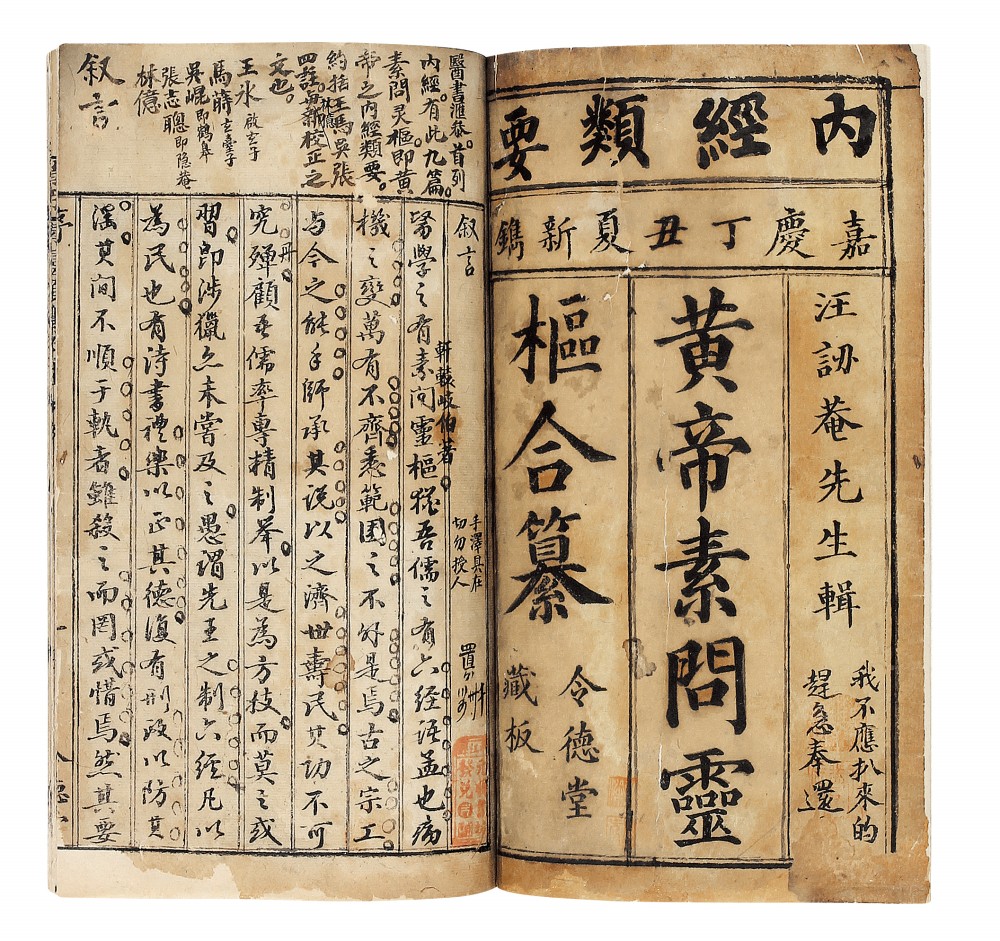 內經類要
嘉慶丁丑夏新鐫
汪訒菴先生輯
我不應扒來的
趕急奉還
黃帝素問靈
樞合纂
令德堂
藏板
醫書滙叅首列
內經有此九篇
素問灵樞即黄
帝之内經類要
約括王馬吳張
四註
新校正之
文也。
王氷 啟玄子
馬蒔 玄臺子
吳崐 即鶴皐
張志聰 即隐菴
林億
叙言
叙言
軒轅岐伯著
手澤具在
切勿挽人
醫學之有素问靈樞猶吾儒之有六经语孟也病
機之變萬有不齊悉範囲之不外是焉古之宗工
与今之能手師承其説以之濟世壽民其功不可
究殫顧吾儒率專精制舉以是為方技而莫之或
習即涉獵亦未嘗及之愚谓先王之制六经凡以
為民也有诗書禮樂以正其德復有刑政以防其
淫其间不順于軌者雖殺之而罔或惜焉然其要